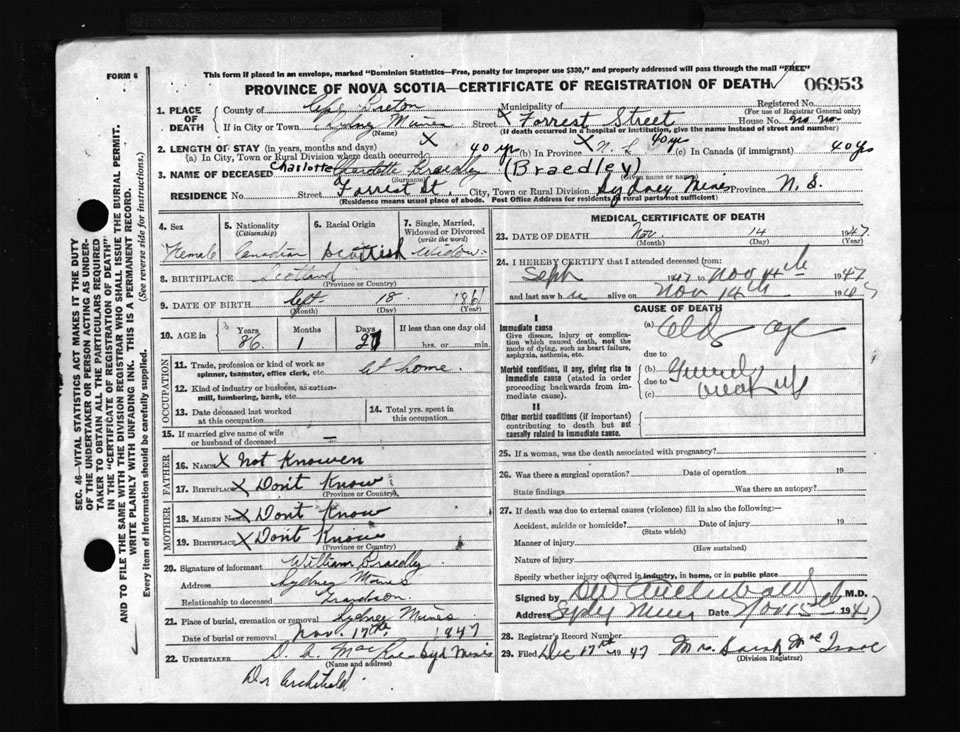 FORM 6
This form if placed in an envelope, marked "Dominion Statistics—Free, penalty for improper use $300," and properly addressed will pass through the mail "FREE"
PROVINCE OF NOVA SCOTIA—CERTIFICATE OF REGISTRATION OF DEATH
06953
1. PLACE OF DEATH
County of Cape Breton
Municipality of
Registered No.
(For use of Registrar General only)
If in City or Town Sydney Mines
(Name)
Street Forrest Street House No. no. no.
(If death occurred in a hospital or institution, give the name instead of street and number)
2. LENGTH OF STAY (in years, months and days)
(a) In City, Town or Rural Division where death occurred 40 yrs (b) In Province N. S. 40 yrs (c) In Canada (if immigrant) 40 yrs
3. NAME OF DECEASED Charlotte Charlotte Braedly (Braedley)
(Surname) (Given name or names)
RESIDENCE No. Street Forrest St. City, Town or Rural Division Sydney Mines Province N. S.
(Residence means usual place of abode. Post Office Address for residents of rural parts not sufficient)
4. Sex
Female
5. Nationality
(Citizenship)
Canadian
6. Racial Origin
Scottish
7. Single, Married, Widowed or Divorced
(write the word)
Widow
8. BIRTHPLACE Scotland
(Province or Country)
9. DATE OF BIRTH Sept. 18 1861
(Month) (Day) (Year)
10. AGE in
Years 86
Months 1
Days 27
If less than one day old
hrs. or min.
OCCUPATION
11. Trade, profession or kind of work as spinner, teamster, office clerk, etc. at home.
12. Kind of industry or business, as cotton-mill, lumbering, bank, etc.
13. Date deceased last worked at this occupation
14. Total yrs. spent in this occupation
15. If married give name of wife or husband of deceased —
FATHER
16. NAME X Not Knowen
17. BIRTHPLACE X Don't Know
(Province or Country)
MOTHER
18. MAIDEN NAME X Don't Know
19. BIRTHPLACE X Don't Know
(Province or Country)
20. Signature of informant William Braedly
Address Sydney Mines
Relationship to deceased Grandson
21. Place of burial, cremation or removal Sydney Mines
Date of burial or removal Nov. 17th, 1947
22. UNDERTAKER D. A. MacRae Syd Mines
(Name and address)
Dr Archibald.
MEDICAL CERTIFICATE OF DEATH
23. DATE OF DEATH Nov. 14 1947
(Month) (Day) (Year)
24. I HEREBY CERTIFY that I attended deceased from:
Sept 1947 to Nov 14th 1947
and last saw h alive on Nov 14th 1947
CAUSE OF DEATH
I
Immediate cause
Give disease, injury or complication which caused death, not the mode of dying, such as heart failure, asphyxia, asthenia, etc.
(a) Old age
due to
Morbid conditions, if any, giving rise to immediate cause (stated in order proceeding backwards from immediate cause).
(b) General
due to
(c) weakness
II
Other morbid conditions (if important) contributing to death but not causally related to immediate cause.
25. If a woman, was the death associated with pregnancy?
26. Was there a surgical operation? Date of operation 19
State findings Was there an autopsy?
27. If death was due to external causes (violence) fill in also the following:—
Accident, suicide or homicide? Date of injury 19
(State which)
Manner of injury
(How sustained)
Nature of injury
Specify whether injury occurred in industry, in home, or in public place
Signed by M.D.
Address Sydney Mines Date Nov 15th 1947
28. Registrar's Record Number
29. Filed Dec 17th 1947 Mrs. Sarah Mc Isaac
(Division Registrar)
SEC. 46—VITAL STATISTICS ACT MAKES IT THE DUTY
OF THE UNDERTAKER OR PERSON ACTING AS UNDER-
TAKER TO OBTAIN ALL THE PARTICULARS REQUIRED
IN THE "CERTIFICATE OF REGISTRATION OF DEATH"
AND TO FILE THE SAME WITH THE DIVISION REGISTRAR WHO SHALL ISSUE THE BURIAL PERMIT.
WRITE PLAINLY WITH UNFADING INK. THIS IS A PERMANENT RECORD.
Every item of information should be carefully supplied. (See reverse side for instructions.)